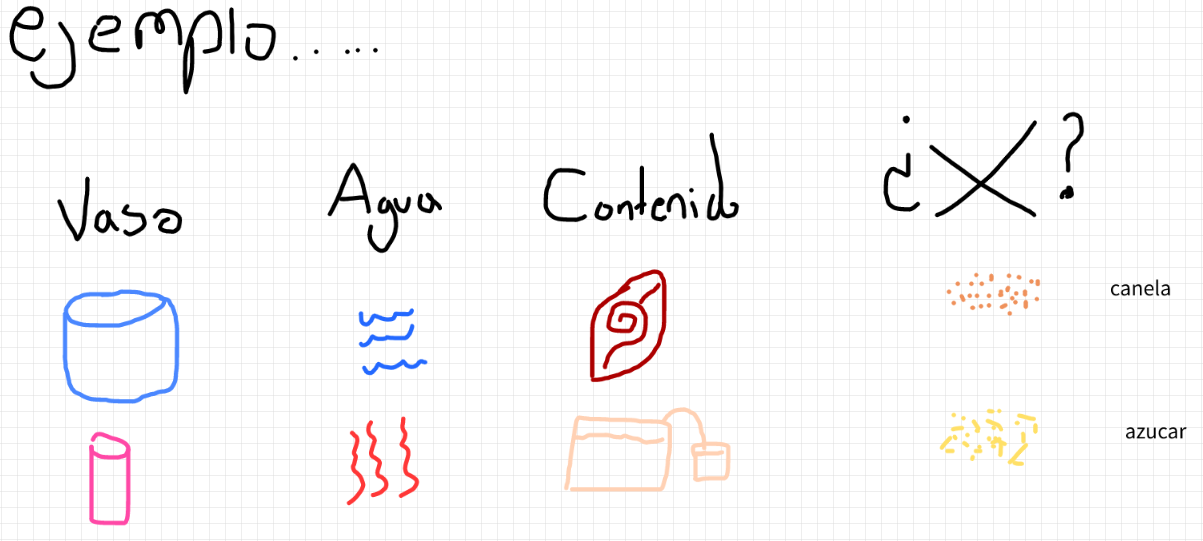 ejemplo......
Vaso Agua Contenido ¿X?
canela
azucar